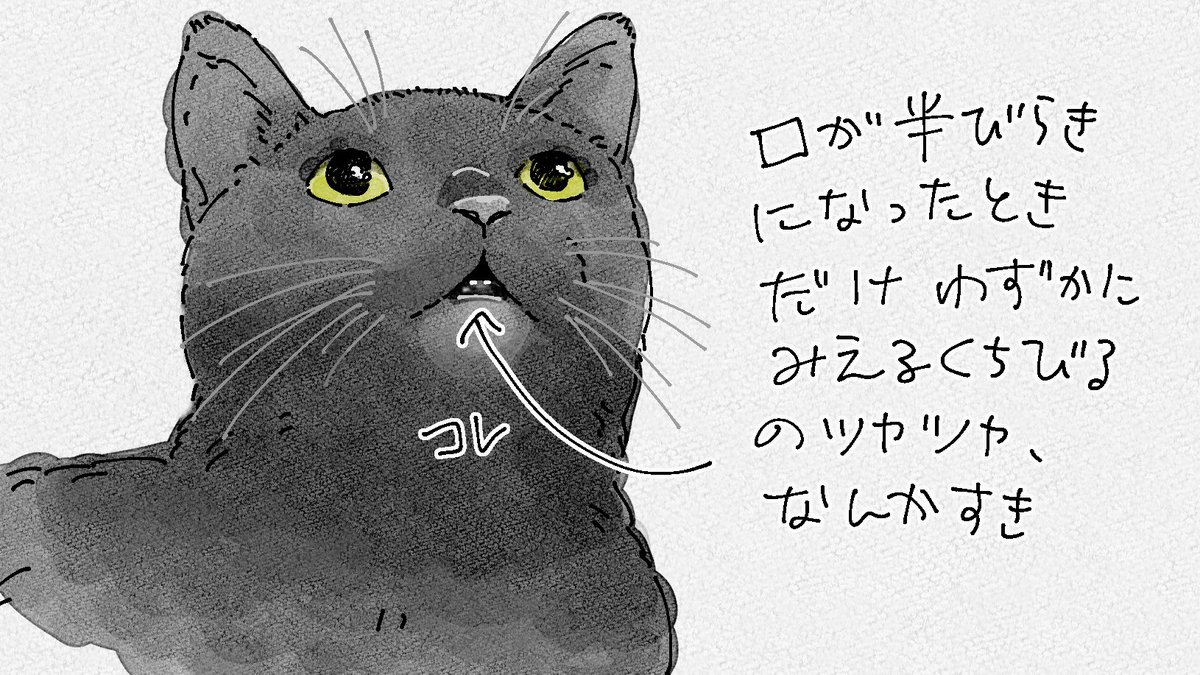 口が半びらき
になったとき
だけ わずかに
みえるくちびる
のツヤツヤ、
なんかすき
コレ